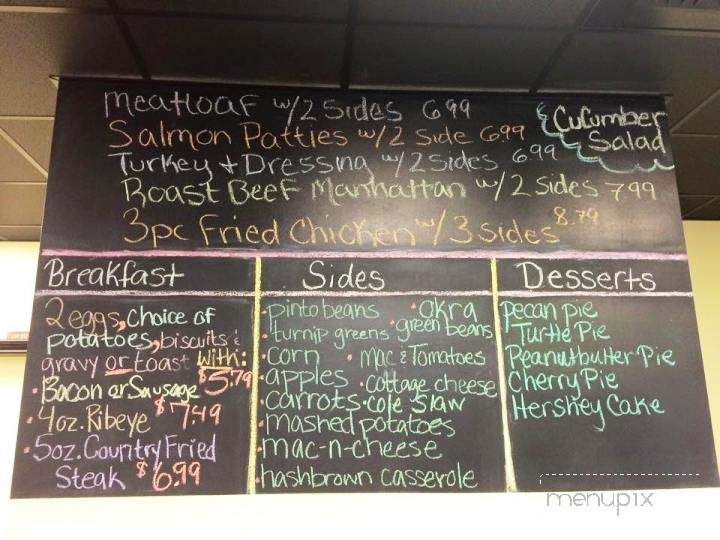 Meatloaf w/2 Sides 6.99
Salmon Patties w/2 Side 6.99
Turkey + Dressing w/2 sides 6.99
Roast Beef Manhattan w/2 sides 7.99
3pc Fried Chicken w/3 sides 8.79
Cucumber
Salad
Breakfast
2 eggs, choice of
potatoes, biscuits &
gravy or toast with:
• Bacon or Sausage $5.79
• 4oz. Ribeye $7.49
• 5oz. Country Fried
Steak $6.99
Sides
• pinto beans • Okra
• turnip greens • green beans
• corn • Mac & Tomatoes
• apples • cottage cheese
• carrots • cole slaw
• mashed potatoes
• mac-n-cheese
• hashbrown casserole
Desserts
pecan pie
Turtle Pie
Peanutbutter Pie
Cherry Pie
Hershey Cake
menupix